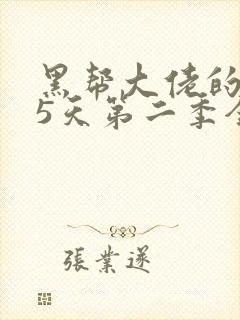 黑帮大佬的
5天第二季全
张業遂